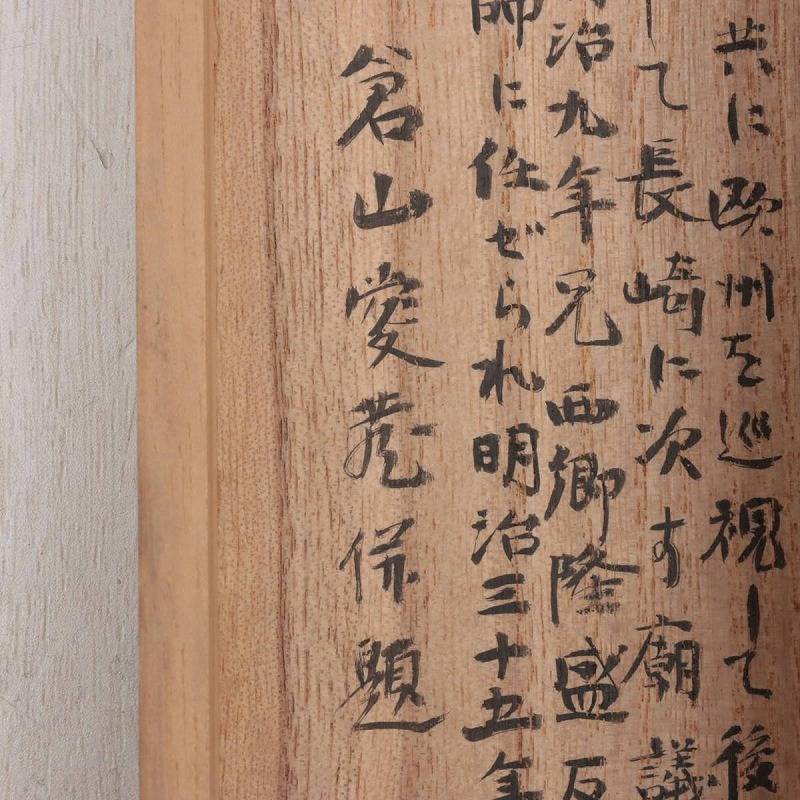 共に欧州を巡視して後
して長崎に次す廟議
治九年兄西郷隆盛反
師に任ぜられ明治三十五年
倉山愛蔵併題